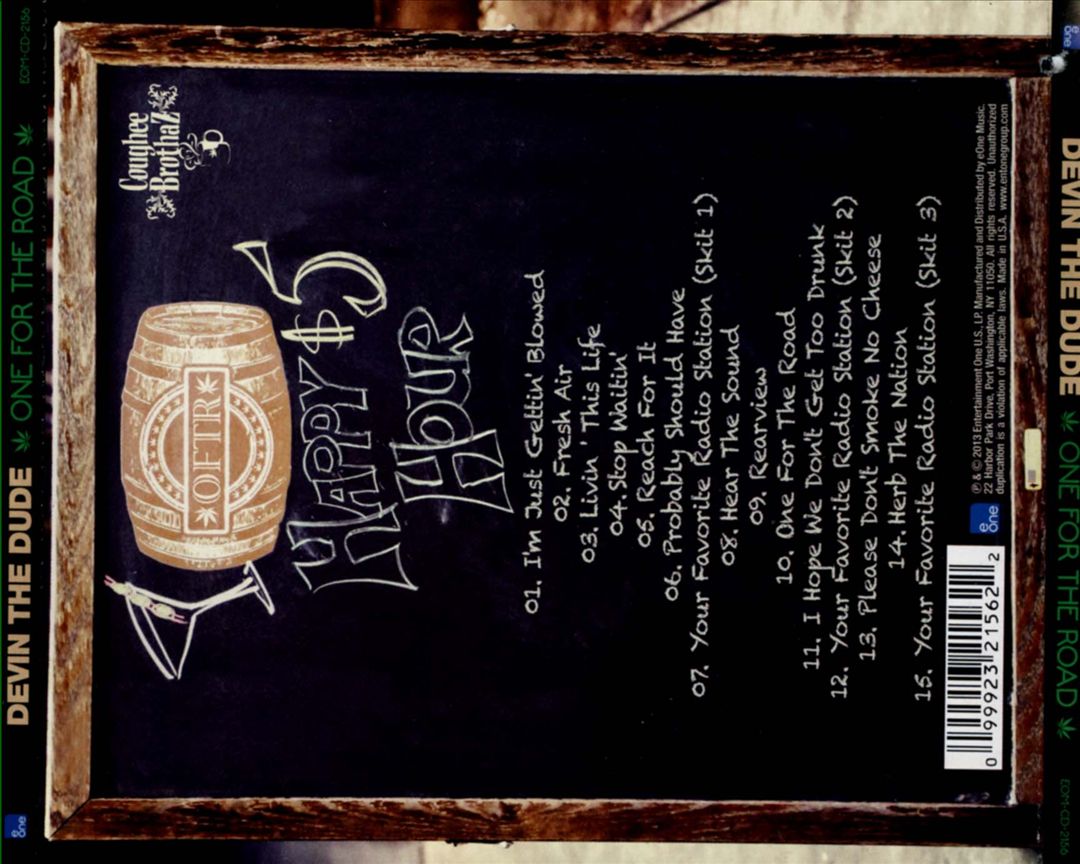 DEVIN THE DUDE ONE FOR THE ROAD EOM-CD-2156
one
Coughee
BrothaZ
OFTR
HAPPY $5
HOUR
01. I'm Just Gettin' Blowed
02. Fresh Air
03. Livin' This Life
04. Stop Waitin'
05. Reach For It
06. Probably Should Have
07. Your Favorite Radio Station (Skit 1)
08. Hear The Sound
09. Rearview
10. One For The Road
11. I Hope We Don't Get Too Drunk
12. Your Favorite Radio Station (Skit 2)
13. Please Don't Smoke No Cheese
14. Herb The Nation
15. Your Favorite Radio Station (Skit 3)
0 99923 21562 2
e one
℗ & © 2013 Entertainment One U.S., LP. Manufactured and Distributed by eOne Music.
22 Harbor Park Drive, Port Washington, NY 11050. All rights reserved. Unauthorized
duplication is a violation of applicable laws. Made in U.S.A. www.entonegroup.com
e one
DEVIN THE DUDE ONE FOR THE ROAD EOM-CD-2156